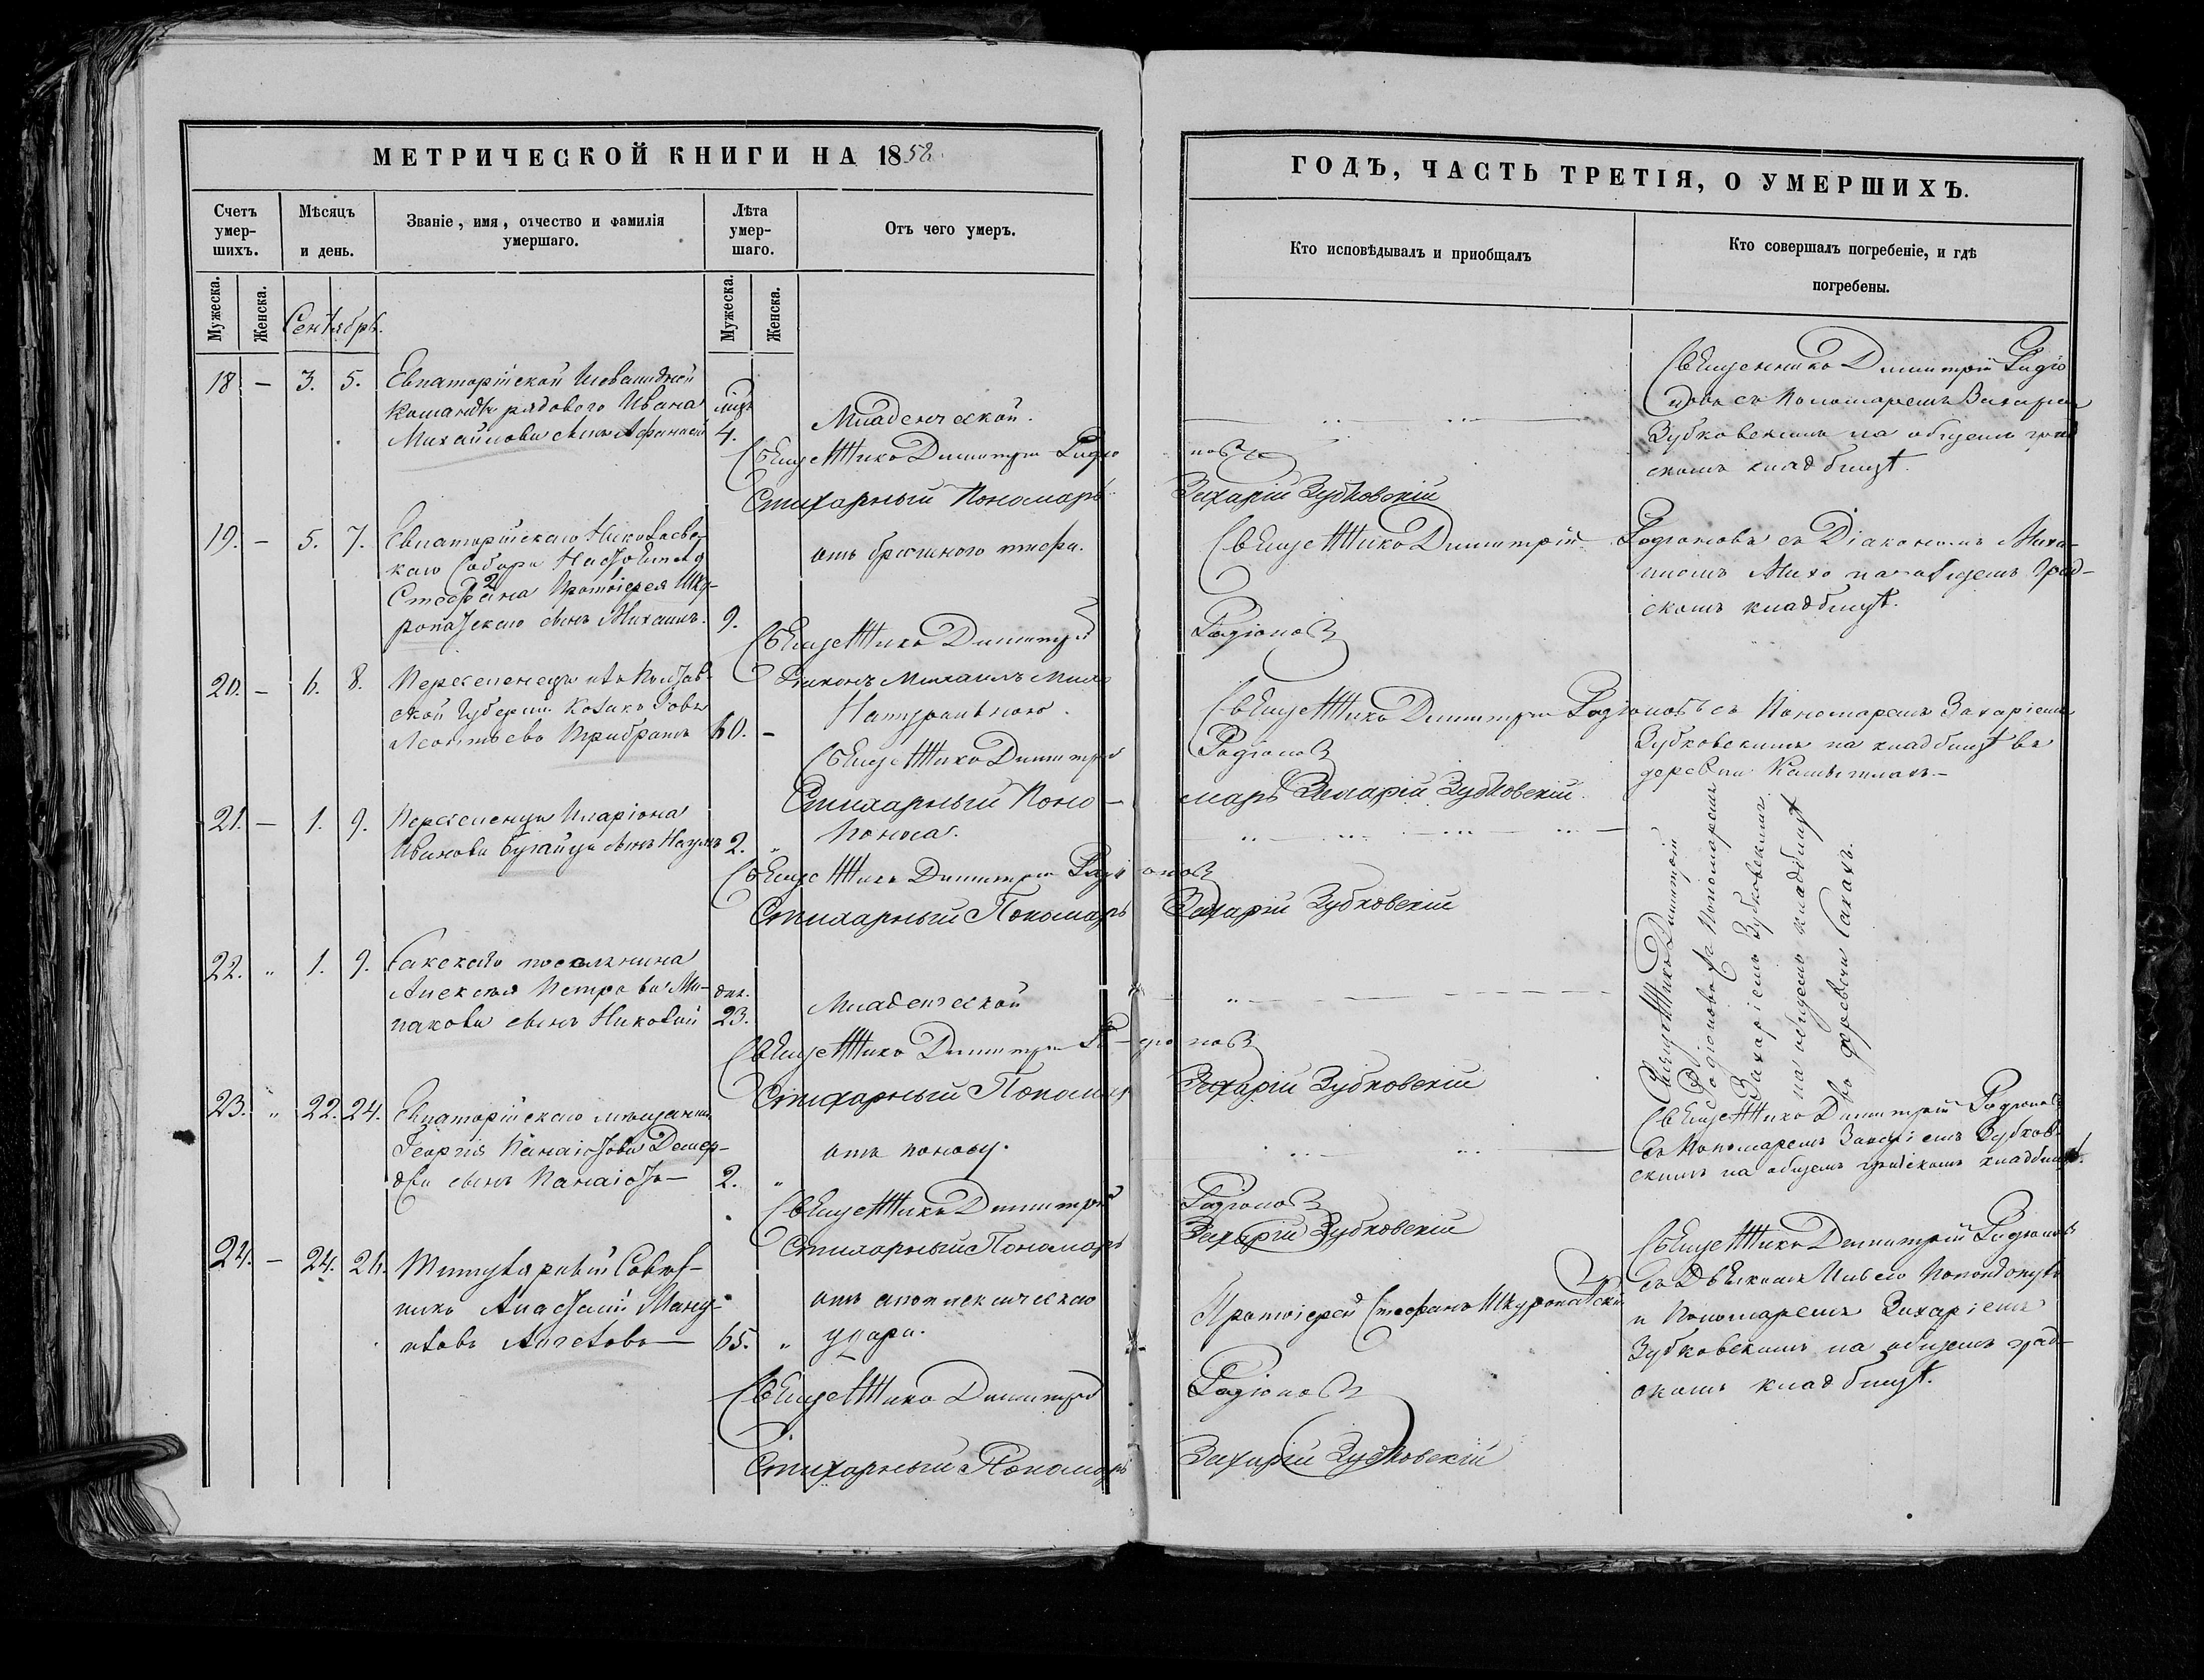 МЕТРИЧЕСКОЙ КНИГИ НА 1858
ГОДЪ, ЧАСТЬ ТРЕТІЯ, О УМЕРШИХЪ.
Счетъ умер-шихъ.
Мѣсяцъ и день.
Званіе, имя, отчество и фамилія умершаго.
Лѣта умер-шаго.
Отъ чего умеръ.
Кто исповѣдывалъ и приобщалъ
Кто совершалъ погребеніе, и гдѣ погребены.
Мужеска.
Женска.
Сентябрь.
Мужеска.
Женска.
18 — 3. 5. Евпаторійской Инвалидной
командѣ рядоваго Ивана
Михайлова сынъ Афанасій 4.
Младенческой.
Священникъ Димитрій Родіо
новъ съ Пономаремъ Захаріемъ
Зубковскимъ на общемъ град
скомъ кладбищѣ.
Священникъ Димитрій Родіо новъ
Стихарный Пономарь Захарій Зубковскій
19. — 5. 7. Евпаторійскаго Николаевс-
каго Собора Настоятеля
Стефана Протоіерея Шку-
ропатскаго сынъ Михаилъ. 9.
отъ брюшного тифа.
Священникъ Димитрій Родіоновъ съ Діакономъ Миха-
иломъ на общемъ град-
скомъ кладбищѣ.
Священникъ Димитрій Родіоновъ
Діаконъ Михаилъ
20. — 6. 8. Переселенецъ Полтав-
ской Губерніи Козакъ
Леонтьевъ 60. —
Натуральною.
Священникъ Димитрій Родіоновъ съ Пономаремъ Захаріемъ
Зубковскимъ на кладбищѣ въ
деревни
Священникъ Димитрій Родіоновъ
Стихарный Поно — марь Захарій Зубковскій
21. — 1. 9. Переселенца Иларіона
Иванова сынъ Наумъ 2. "
Поноса.
Священникъ Димитрій Родіоновъ
Стихарный Пономарь Захарій Зубковскій
Священникъ Димитрій
Родіоновъ съ Пономаремъ
Захаріемъ Зубковскимъ
на общемъ кладбищѣ
въ деревни Сакахъ.
22. " 1. 9. Сакскаго поселянина
Алексѣя Петрова
сынъ Николай дн. 23.
Младенческой
Священникъ Димитрій Родіоновъ
Стихарный Пономарь Захарій Зубковскій
23. " 22. 24. Евпаторійскаго мѣщанина
Георгія Панаіотова
сынъ Панаіотъ — 2. "
отъ поносу.
Священникъ Димитрій Родіоновъ
съ Пономаремъ Захаріемъ Зубков-
скимъ на общемъ градскомъ кладбищѣ.
Священникъ Димитрій Родіоновъ
Стихарный Пономарь Захарій Зубковскій
24. — 24. 26. Титулярный Совѣт-
никъ Анастасій
Ангеловъ — 65. "
отъ апоплексическаго
удара.
Протоіерей Стефанъ Шкуропатскій
Священникъ Димитрій Родіоновъ
и Пономаремъ Захаріемъ
Зубковскимъ на общемъ град-
скомъ кладбищѣ.
Священникъ Димитрій Родіоновъ
Стихарный Пономарь Захарій Зубковскій